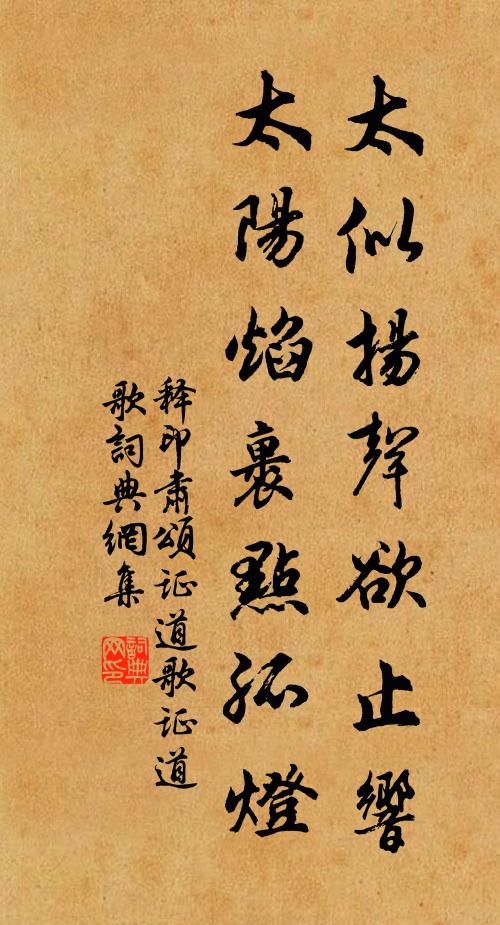 太似揚聲欲止響
太陽焰裏點孤燈
释印肅頌证道歌证道
歌詞典網集
詞典
网印